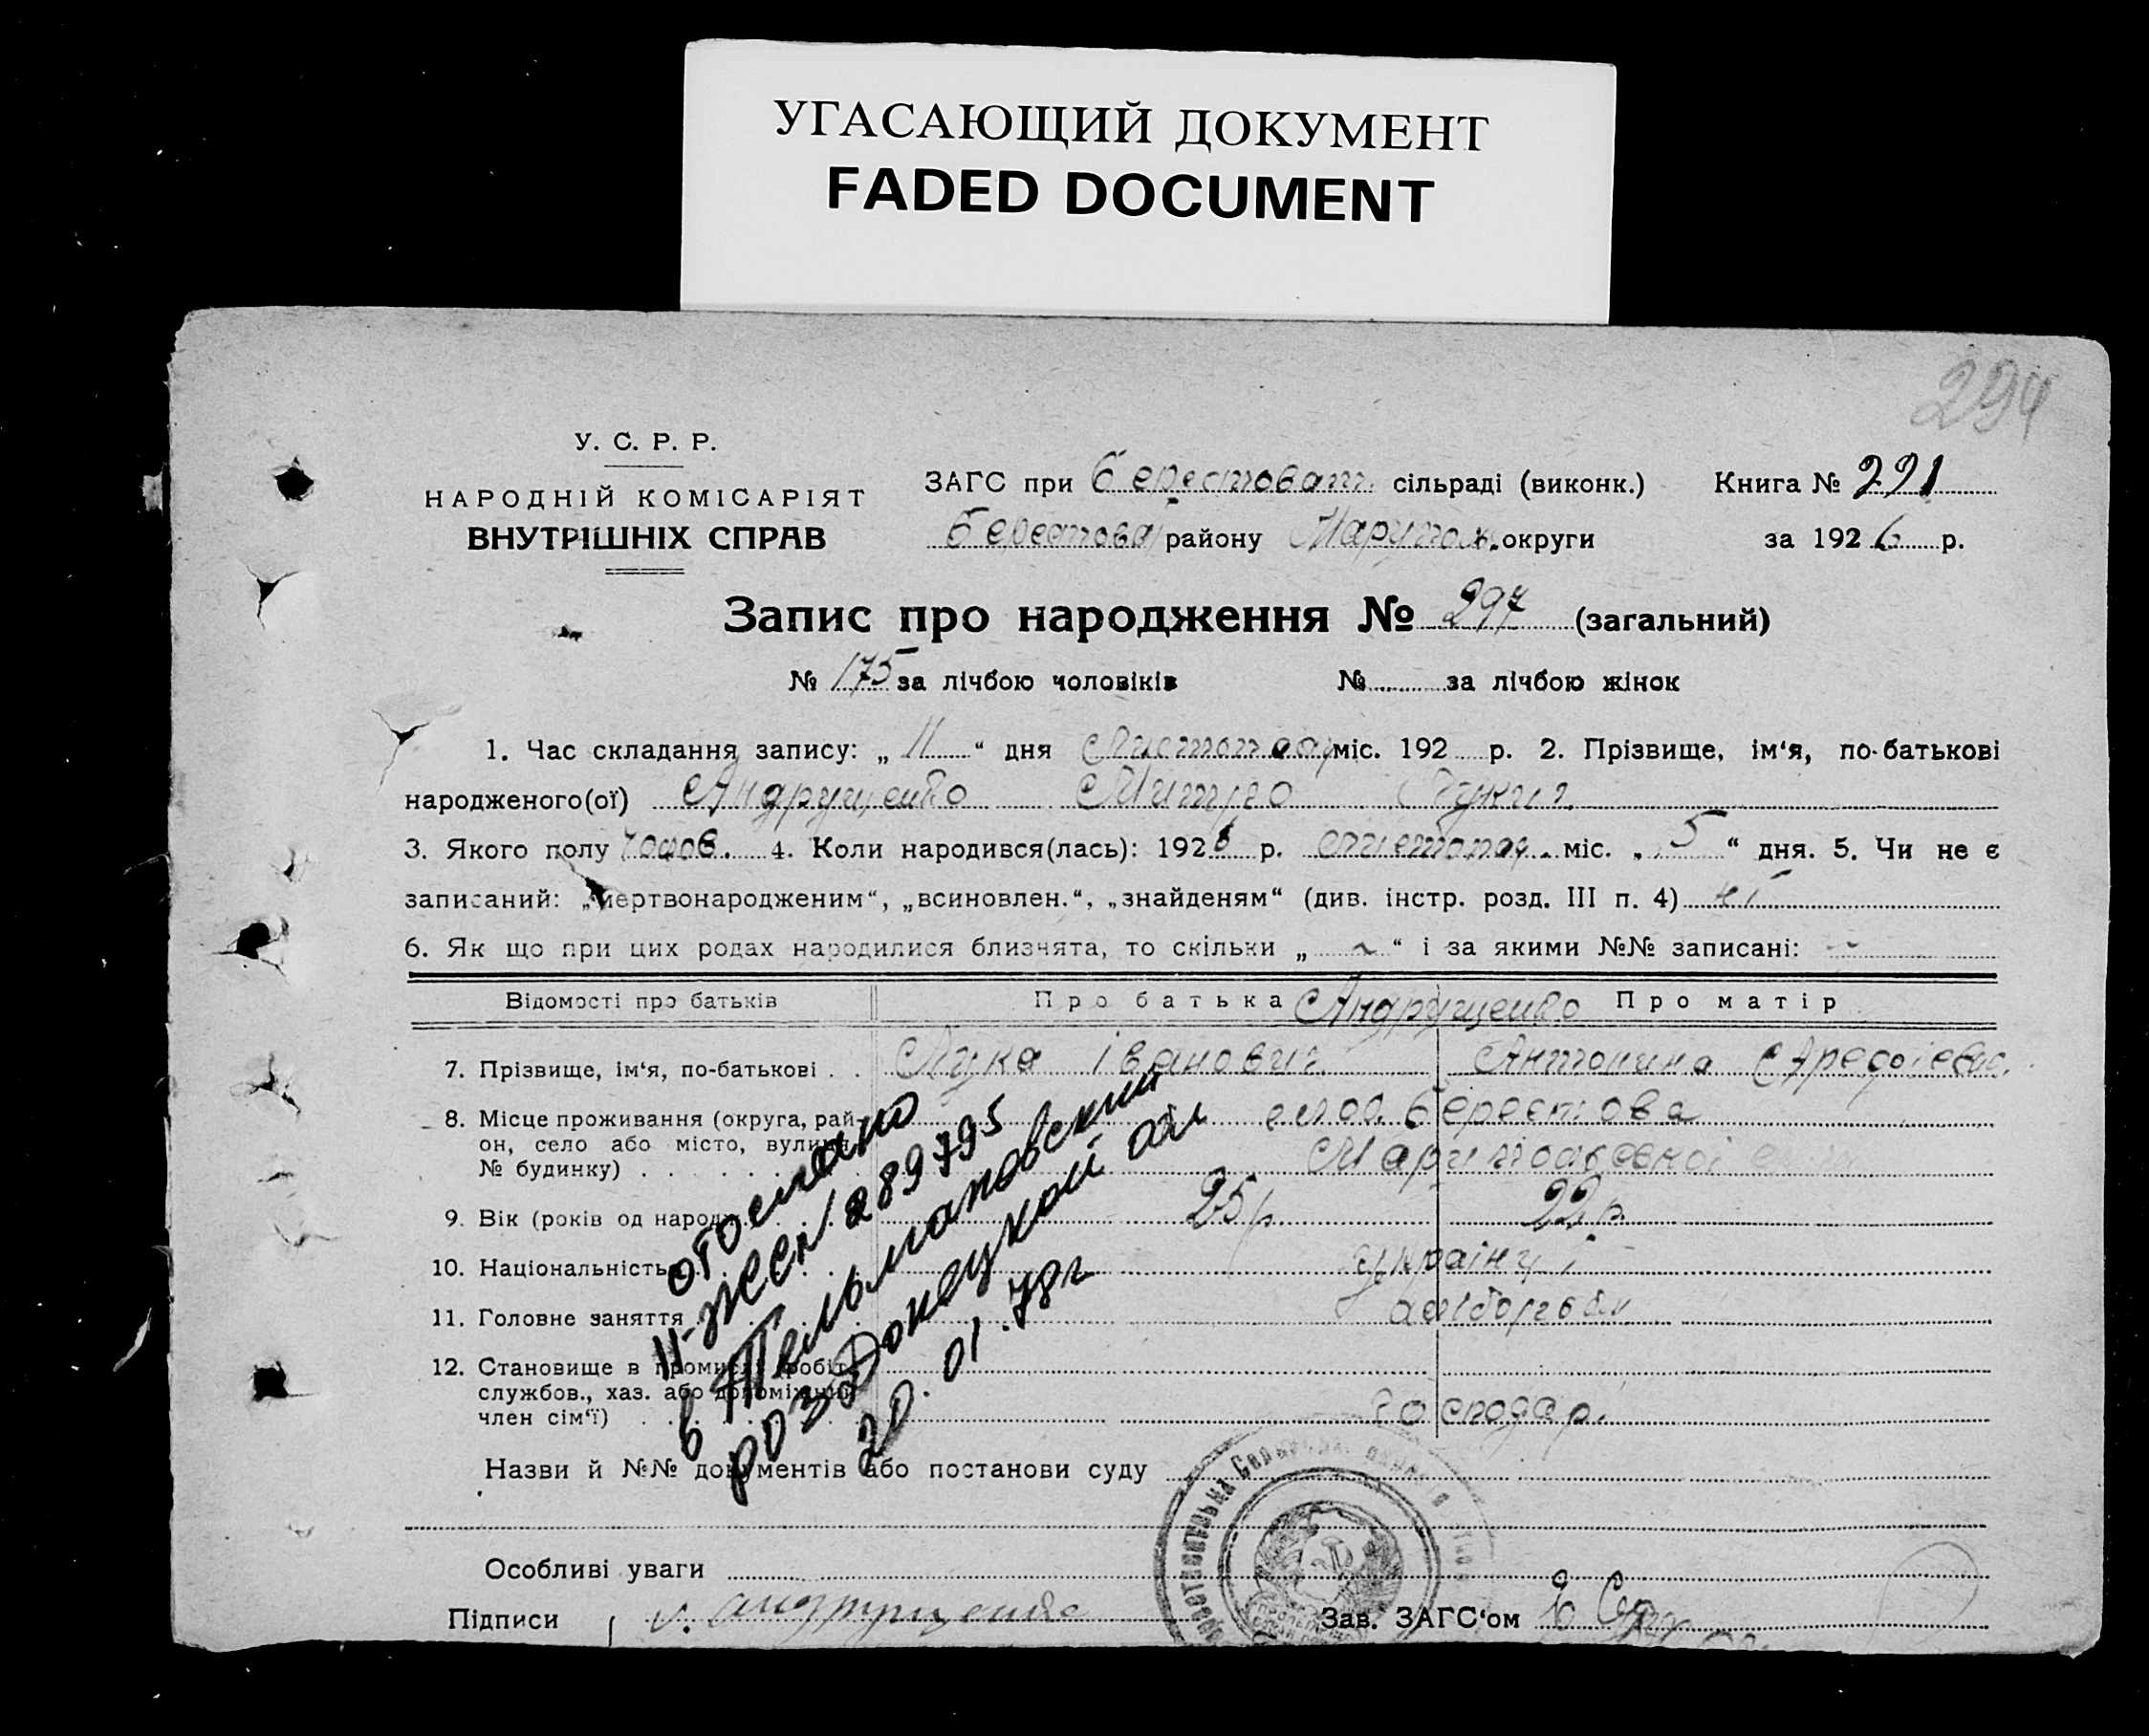 УГАСАЮЩИЙ ДОКУМЕНТ
FADED DOCUMENT
294
У. С. Р. Р.
НАРОДНІЙ КОМІСАРІЯТ
ВНУТРІШНІХ СПРАВ
ЗАГС при Берестоват. сільраді (виконк.) Книга № 221
Берестова району Марупол. округи за 1926 р.
Запис про народження № 297 (загальний)
№ 175 за лічбою чоловіків № за лічбою жінок
1. Час складання запису: „ 11 “ дня Листопад міс. 192 р. 2. Прізвище, ім‘я, по-батькові
народженого(ої) Андрущенко Митро Лукич
3. Якого полу чолов. 4. Коли народився(лась): 1926 р. листопад. міс. „ 5 “ дня. 5. Чи не є
записаний: „мертвонародженим“, „всиновлен.“, „знайденям“ (див. інстр. розд. III п. 4) ні
6. Як що при цих родах народилися близнята, то скільки „ - “ і за якими №№ записані: -
Відомості про батьків Про батька Андрущенко Про матір
7. Прізвище, ім‘я, по-батькові . . Лука Іванович Антонина
8. Місце проживання (округа, рай- Берестова
он, село або місто, вулиця,
№ будинку) . . . Маріюпольської
9. Вік (років од народж. 25 р. 22 р.
10. Національність українці
11. Головне заняття хліборобс
12. Становище в промислі робіт.
службов., хаз. або допоміжний
член сім‘ї) . . . господар.
отослано
II-ЖЕС № 289795
в Тельмановский
р озд Донецкой обл
20.01.78г
Назви й №№ документів або постанови суду
Особливі уваги
Підписи Андрущенко Зав. ЗАГС‘ом